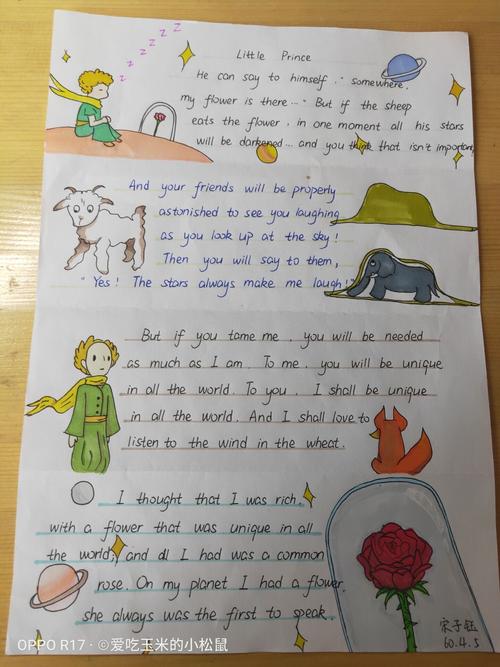 z z z z z z
Little Prince
He can say to himself, "somewhere,
my flower is there..." But if the sheep
eats the flower, in one moment all his stars
will be darkened... and you think that isn't important
And your friends will be properly
astonished to see you laughing
as you look up at the sky!
Then you will say to them,
"Yes! The stars always make me laugh!
But if you tame me, you will be needed
as much as I am. To me, you will be unique
in all the world. To you, I shall be unique
in all the world. And I shall love to
listen to the wind in the wheat.
I thought that I was rich,
with a flower that was unique in all
the world; and all I had was a common
rose. On my planet I had a flower,
she always was the first to speak.
宋子钰
60.4.5
OPPO R17 · ©爱吃玉米的小松鼠